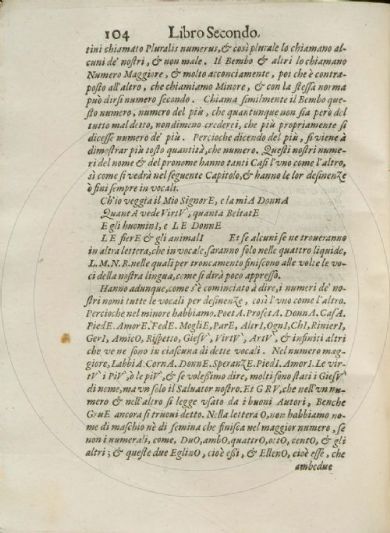 104 Libro Secondo.
tini chiamato Pluralis numerus, & così plurale lo chiamano al-
cuni de' nostri, & non male. Il Bembo & altri lo chiamano
Numero Maggiore, & molto acconciamente, poi che è contra-
posto all'altro, che chiamiamo Minore, & con la stessa norma
può dirsi numero secondo. Chiama similmente il Bembo que-
sto numero, numero del più, che quantunque non sia però del
tutto mal detto, nondimeno crederei, che più propriamente si
dicesse numero de' più. Percioche dicendo del più, si viene à
dimostrar più tosto quantità, che numero. Questi nostri nume-
ri del nome & del pronome hanno tanti Casi l'uno come l'altro,
sì come si vedrà nel seguente Capitolo, & hanno le lor desinenze
ò fini sempre in vocali.
Ch'io veggia il mio SignorE, e la miA DonnA
QuantA vede VirtV, quanta BeltatE
E gli huominI, e LE DonnE
LE fierE & gli animalI Et se alcuni se ne troueranno
in altra lettera, che in vocale, saranno solo nelle quattro liquide,
L.M.N.R. nelle quali per troncamento finiscono alle volte le vo-
ci della nostra lingua, come si dirà poco appresso.
Hanno adunque, come s'è cominciato à dire, i numeri de' no-
stri nomi tutte le vocali per desinenze, così l'uno come l'altro.
Percioche nel minore habbiamo. PoetA. ProfetA. DonnA. CasA.
PiedE. AmorE. FedE. MogliE, ParE, AlerI, OgnI, ChI, RinierI,
GerI, AmicO, Rispetto, GiesV, VirtV, ArtV, & infiniti altri
che ve ne sono in ciascuna di dette vocali. Nel numero mag-
giore, LabbiA. CornA. DonnE. SperanzE. PiedI. AmorI. Le vir-
tV i PiV, ò le piV, & se volessimo dire, molti sono stati i GiesV
di nome, ma un solo il Saluator nostro. Et GRV, che nell'un nu-
mero & nell'altro si legge usato da i buoni Autori, Benche
GruE ancora si truoui detto. Nella lettera O, non habbiamo no-
me di maschio nè di femina che finisca nel maggior numero, se
non i numerali, come. DuO, ambO, quattrO, ottO, centO, & gli
altri; & queste due EglinO, cioè essi, & ElleнO, cioè esse, che
ambedue